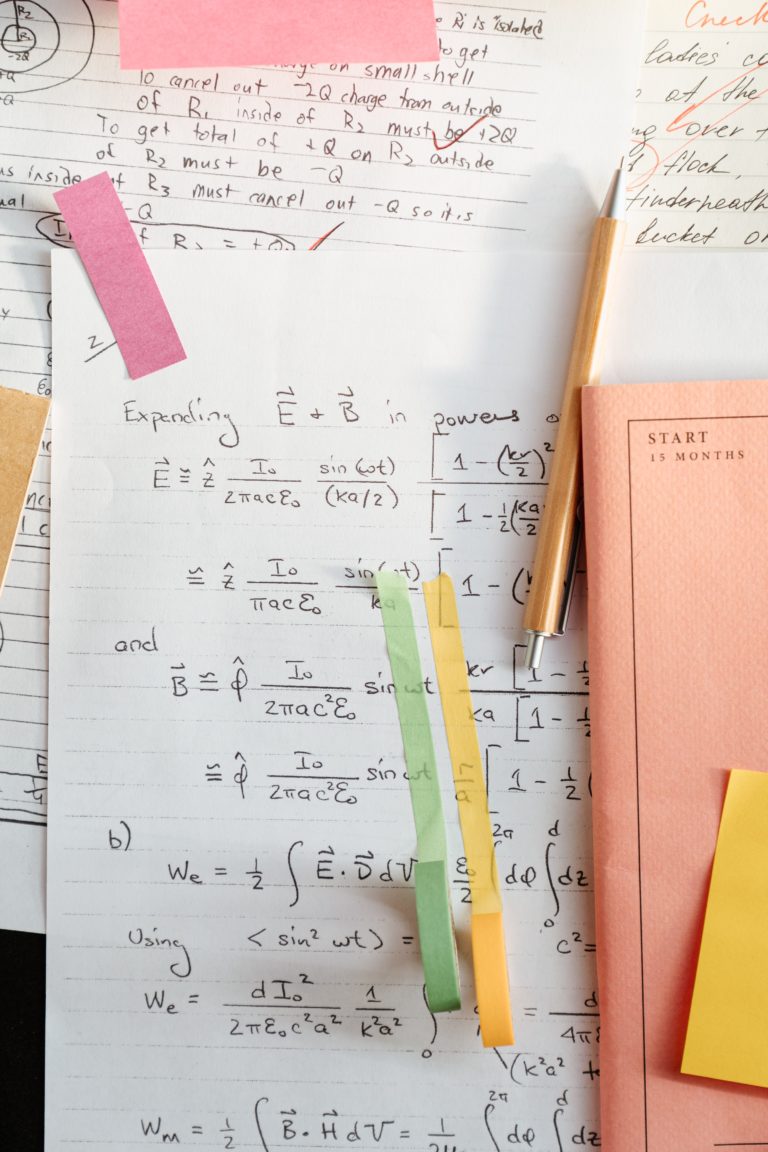 R₂
R₁
-2Q
+Q
-Q
Ri is isolated
to get
charge on small shell
To cancel out -2Q charge from outside
of R₁ inside of R₂ must be +2Q
To get total of +Q on R₂ outside
of R₂ must be -Q
inside of R₃ must cancel out -Q so it is
-Q
of R₃ = +Q
Check
ladies
at the
over
flock,
bucket
2
Expanding E⃗ + B⃗ in powers
E⃗ ≅ ẑ I₀/2πacε₀ sin(ωt)/(ka/2) [1 - (kr/2)²
[1 - ½(ka/2
≅ ẑ I₀/πacε₀ sin(ωt)/ka [1 - (
and
B⃗ ≅ φ̂ I₀/2πac²ε₀ sin ωt kr/ka [1 - ½
[1 - ½
≅ φ̂ I₀/2πac²ε₀ sin ωt [1 - ½(
b)
We = ½ ∫ E⃗ · D⃗ dV ε₀/2 ∫ 2π dφ ∫₀ᵈ dz
Using < sin² ωt > = c² =
We = dI₀²/2πε₀c²a² 1/k²a² ∫₀ = d/4πε
(k²a² +
Wm = ½ ∫ B⃗ · H⃗ dV = ∫ 2π dφ ∫ d dz
START
15 MONTHS